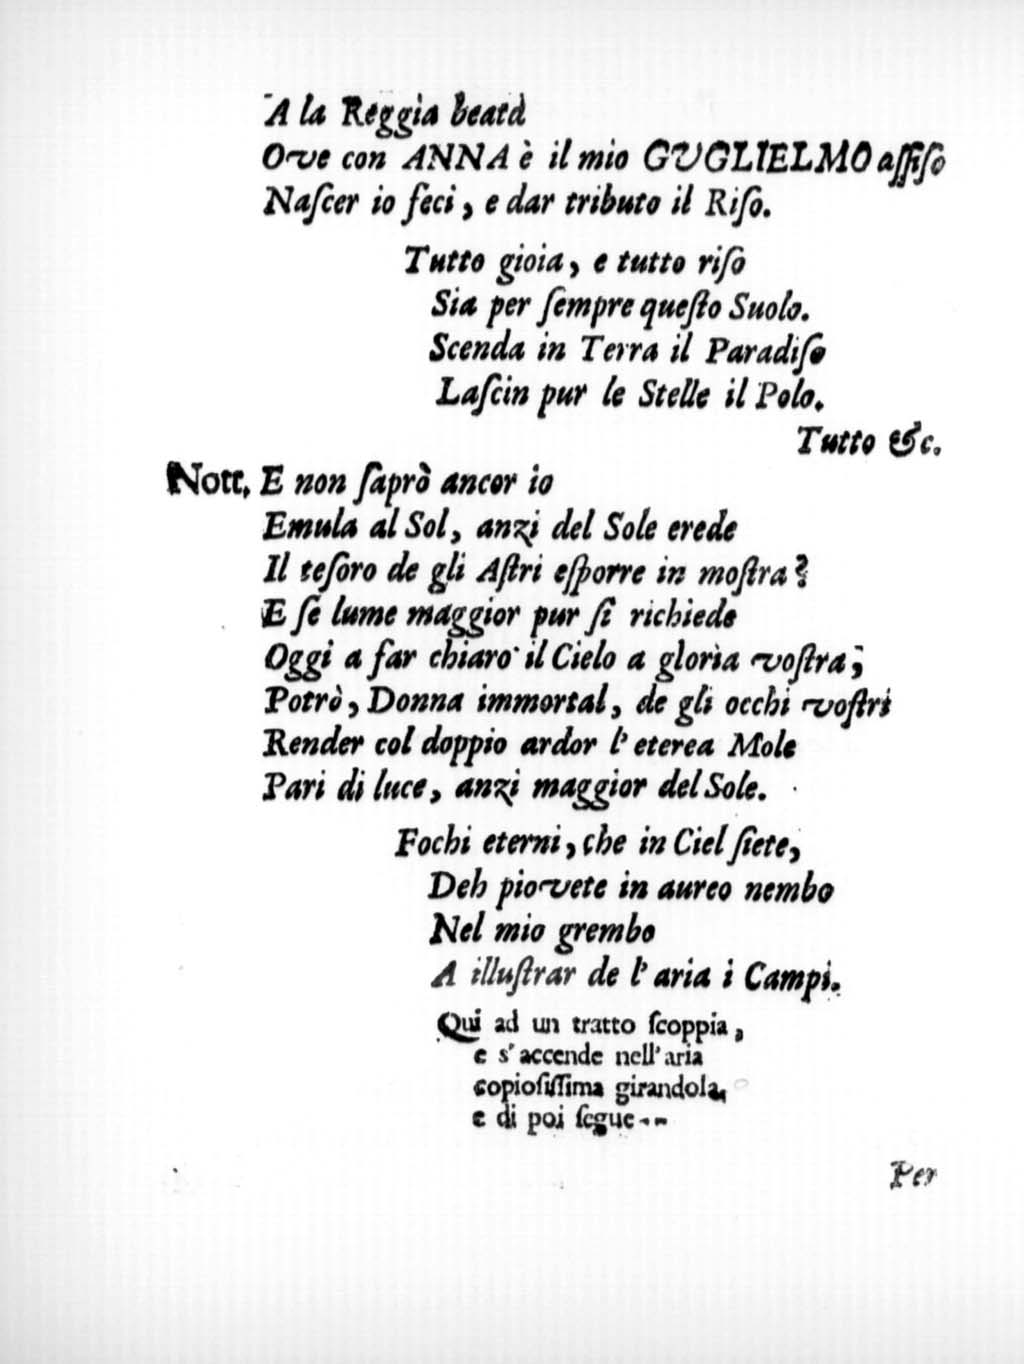 A la Reggia beata
Ove con ANNA è il mio GVGLIELMO aſſiſo
Naſcer io feci, e dar tributo il Riſo.
Tutto gioia, e tutto riſo
Sia per ſempre queſto Suolo.
Scenda in Terra il Paradiſo
Laſcin pur le Stelle il Polo.
Tutto &c.
Nott. E non ſaprò ancor io
Emula al Sol, anzi del Sole erede
Il teſoro de gli Aſtri eſporre in moſtra?
E ſe lume maggior pur ſi richiede
Oggi a far chiaro il Cielo a gloria voſtra;
Potrò, Donna immortal, de gli occhi voſtri
Render col doppio ardor l'eterea Mole
Pari di luce, anzi maggior del Sole.
Fochi eterni, che in Ciel ſiete,
Deh piovete in aureo nembo
Nel mio grembo
A illuſtrar de l'aria i Campi.
Qui ad un tratto ſcoppia,
e s'accende nell'aria
copioſiſſima girandola,
e di poi ſegue--
Per